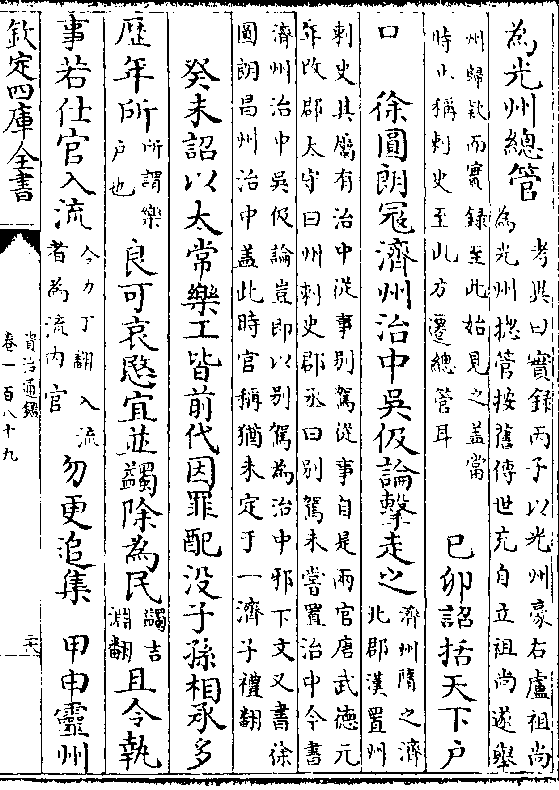 為光州總管考異曰實錄丙子以光州豪右盧祖尚
為光州揔管按舊傳世充自立祖尚遂舉
州歸欵而實録至此始見之蓋當
時止稱刺史至此方遷總管耳　己卯詔括天下户
口　徐圓朗宼濟州治中吳伋論擊走之濟州隋之濟
北郡漢置州
刺史其屬有治中從事别駕從事自是兩官唐武德元
年改郡太守曰州刺史郡丞曰别駕未嘗置治中今書
濟州治中吳伋論豈即以别駕為治中邪下文又書徐
圓朗昌州治中盖此時官稱猶未定于一濟子禮翻
癸未詔以太常樂工皆前代因罪配没子孫相承多
歴年所所謂樂
户也良可哀愍宜並蠲除為民蠲吉
淵翻且令執
事若仕官入流今力丁翻入流
者為流内官勿更追集　甲申靈州
欽定四庫全書
資治通鑑
卷一百八十九
二六